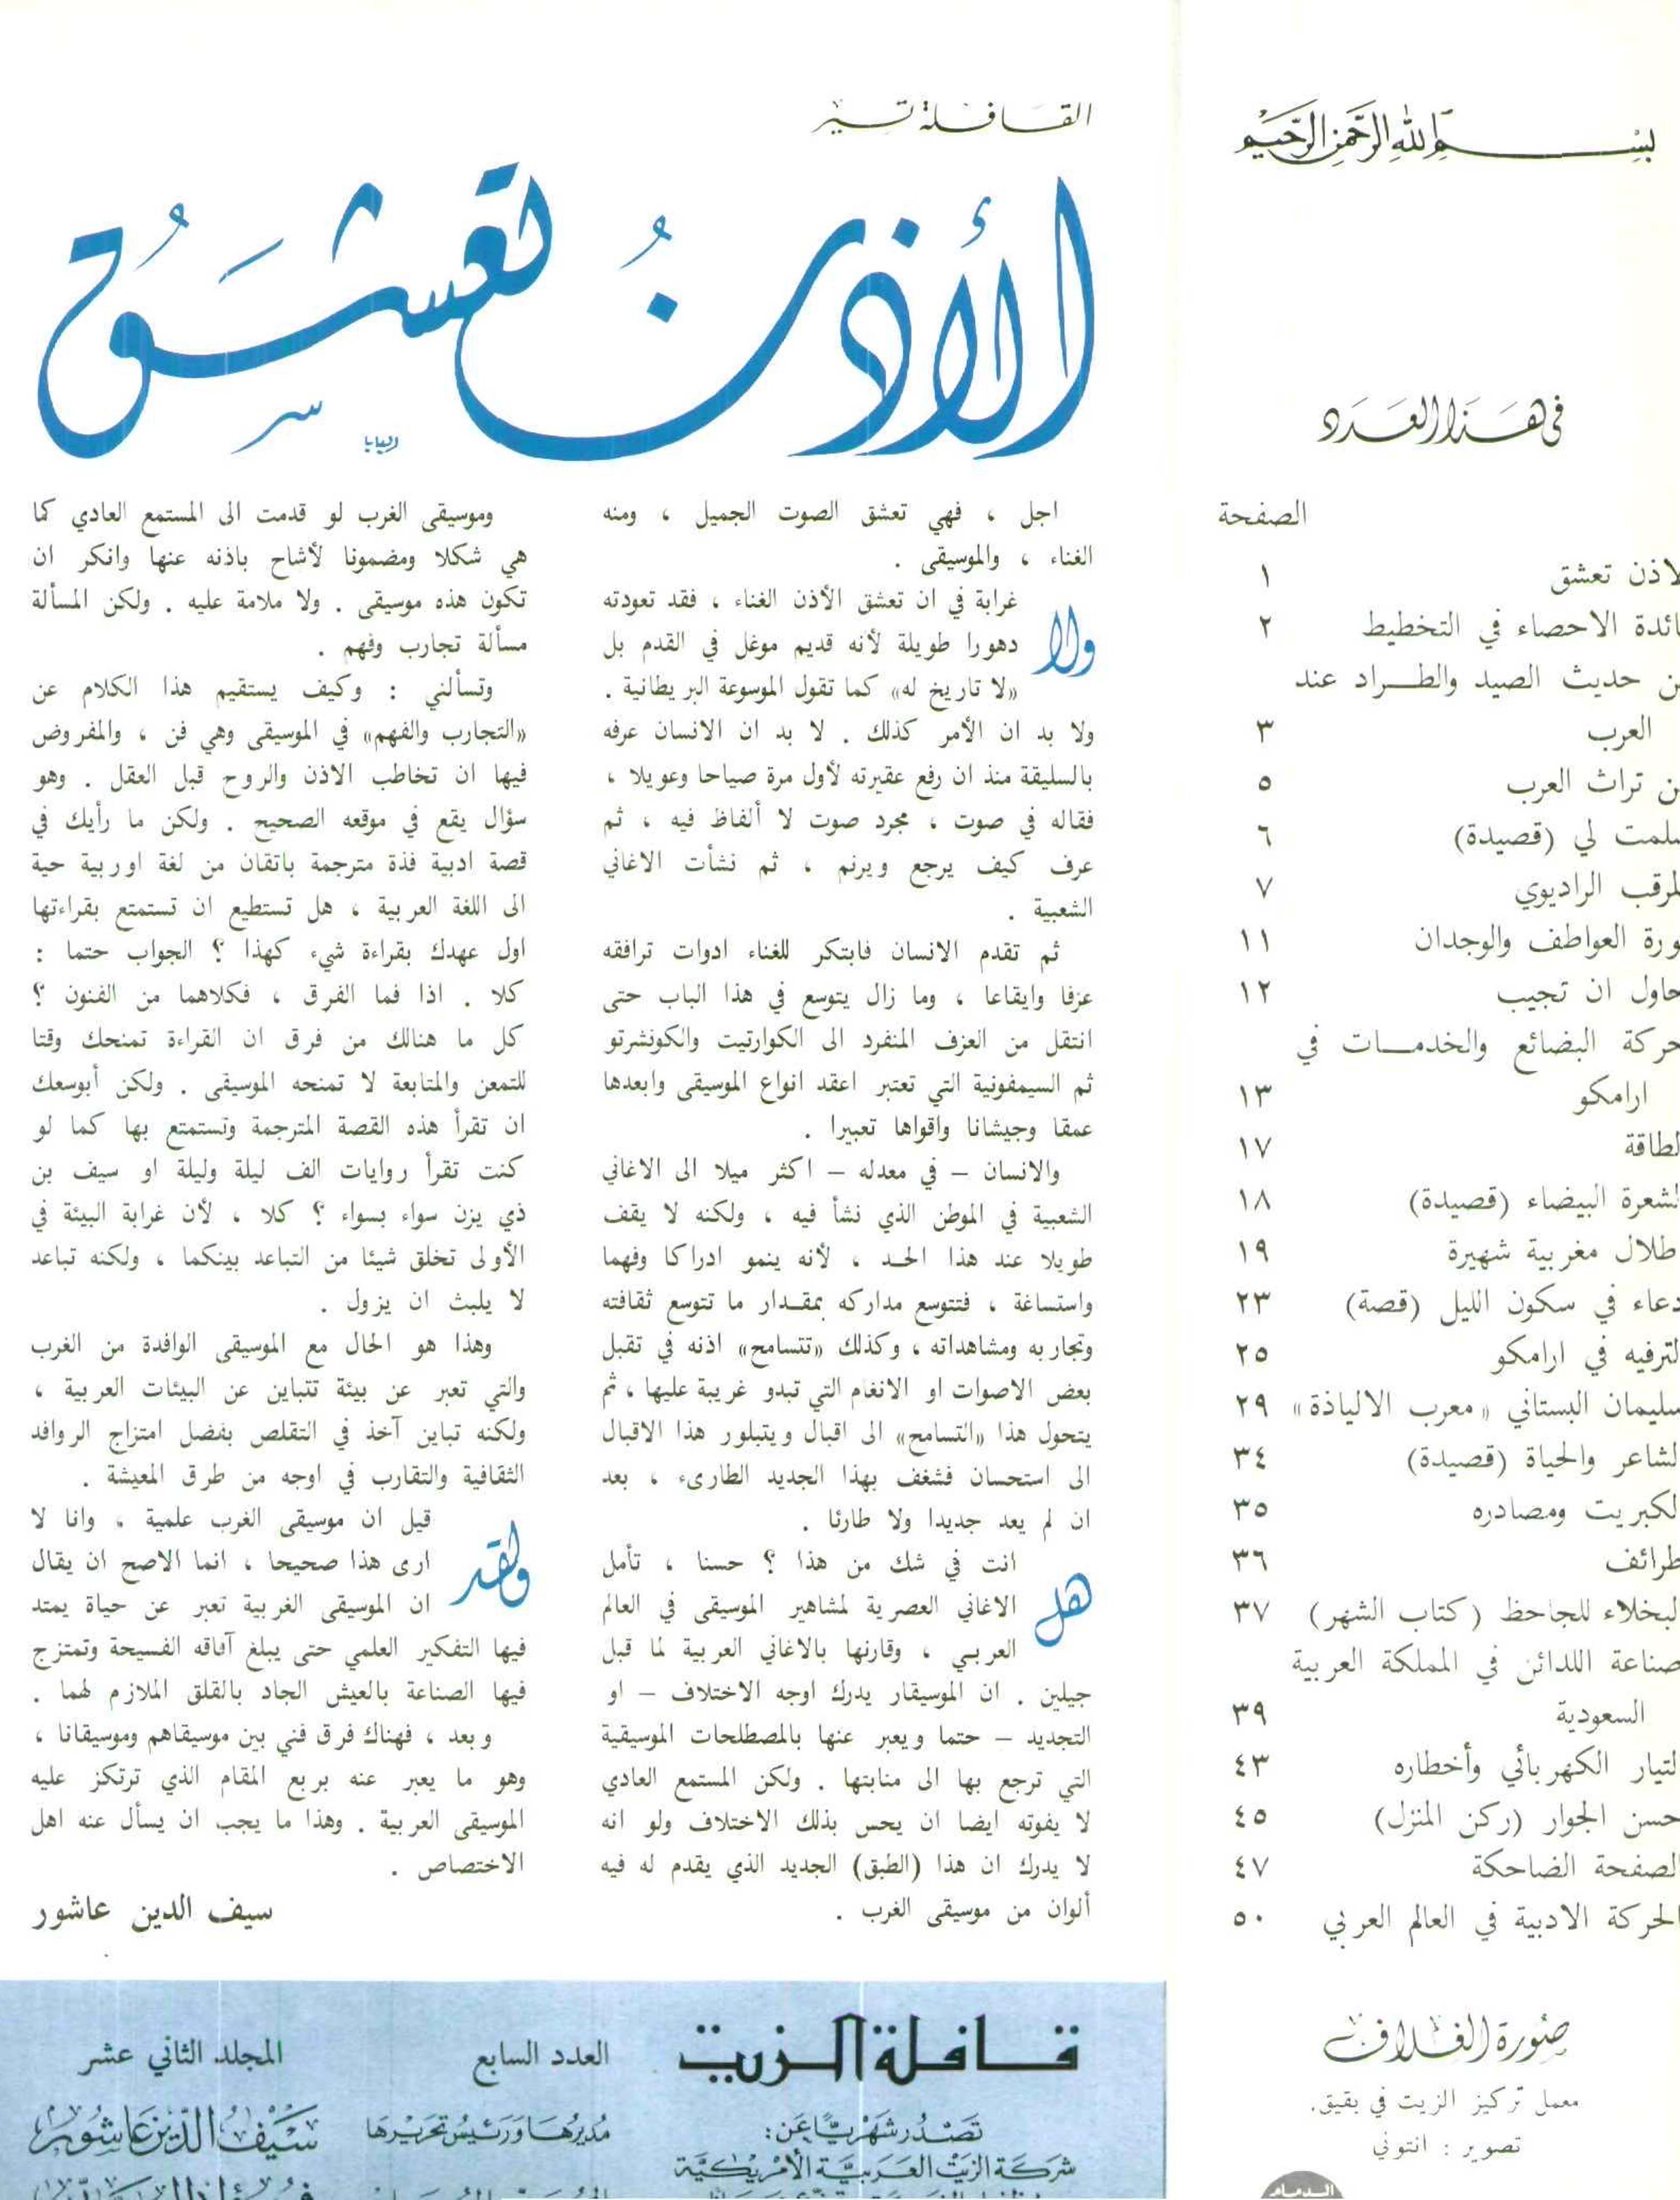 بسم الله الرحمن الرحيم
في هذا العدد
الصفحة
لاذن تعشق ١
ائدة الاحصاء في التخطيط ٢
ن حديث الصيد والطـراد عند
العرب ٣
ن تراث العرب ٥
سلمت لي (قصيدة) ٦
لمرقب الراديوي ٧
ورة العواطف والوجدان ١١
حاول ان تجيب ١٢
حركة البضائع والخدمـات في
ارامكو ١٣
لطاقة ١٧
لشعرة البيضاء (قصيدة) ١٨
طلال مغربية شهيرة ١٩
دعاء في سكون الليل (قصة) ٢٣
لترفيه في ارامكو ٢٥
سليمان البستاني «معرب الالياذة» ٢٩
لشاعر والحياة (قصيدة) ٣٤
لكبريت ومصادره ٣٥
طرائف ٣٦
لبخلاء للجاحظ (كتاب الشهر) ٣٧
صناعة اللدائن في المملكة العربية
السعودية ٣٩
لتيار الكهربائي وأخطاره ٤٣
حسن الجوار (ركن المنزل) ٤٥
لصفحة الضاحكة ٤٧
لحركة الادبية في العالم العربي ٥٠
صورة الغلاف
معمل تركيز الزيت في بقيق.
تصوير : انتوني
الدمام
القافلة تسير
الأذن تعشق
اجل ، فهي تعشق الصوت الجميل ، ومنه
الغناء ، والموسيقى .
ولا غرابة في ان تعشق الأذن الغناء ، فقد تعودته
دهورا طويلة لأنه قديم موغل في القدم بل
«لا تاريخ له» كما تقول الموسوعة البريطانية .
ولا بد ان الأمر كذلك . لا بد ان الانسان عرفه
بالسليقة منذ ان رفع عقيرته لأول مرة صياحا وعويلا ،
فقاله في صوت ، مجرد صوت لا ألفاظ فيه ، ثم
عرف كيف يرجع ويرنم ، ثم نشأت الاغاني
الشعبية .
ثم تقدم الانسان فابتكر للغناء ادوات ترافقه
عزفا وايقاعا ، وما زال يتوسع في هذا الباب حتى
انتقل من العزف المنفرد الى الكوارتيت والكونشرتو
ثم السيمفونية التي تعتبر اعقد انواع الموسيقى وابعدها
عمقا وجيشانا واقواها تعبيرا .
والانسان – في معدله – اكثر ميلا الى الاغاني
الشعبية في الموطن الذي نشأ فيه ، ولكنه لا يقف
طويلا عند هذا الحـد ، لأنه ينمو ادراكا وفهما
واستساغة ، فتتوسع مداركه بمقـدار ما تتوسع ثقافته
وتجاربه ومشاهداته ، وكذلك «تتسامح» اذنه في تقبل
بعض الاصوات او الانغام التي تبدو غريبة عليها ، ثم
يتحول هذا «التسامح» الى اقبال ويتبلور هذا الاقبال
الى استحسان فشغف بهذا الجديد الطارىء ، بعد
ان لم يعد جديدا ولا طارئا .
هل انت في شك من هذا ؟ حسنا ، تأمل
الاغاني العصرية لمشاهير الموسيقى في العالم
العربـي ، وقارنها بالاغاني العربية لما قبل
جيلين . ان الموسيقار يدرك اوجه الاختلاف – او
التجديد – حتما ويعبر عنها بالمصطلحات الموسيقية
التي ترجع بها الى منابتها . ولكن المستمع العادي
لا يفوته ايضا ان يحس بذلك الاختلاف ولو انه
لا يدرك ان هذا (الطبق) الجديد الذي يقدم له فيه
ألوان من موسيقى الغرب .
وموسيقى الغرب لو قدمت الى المستمع العادي كما
هي شكلا ومضمونا لأشاح باذنه عنها وانكر ان
تكون هذه موسيقى . ولا ملامة عليه . ولكن المسألة
مسألة تجارب وفهم .
وتسألني : وكيف يستقيم هذا الكلام عن
«التجارب والفهم» في الموسيقى وهي فن ، والمفروض
فيها ان تخاطب الاذن والروح قبل العقل . وهو
سؤال يقع في موقعه الصحيح . ولكن ما رأيك في
قصة ادبية فذة مترجمة باتقان من لغة اوربية حية
الى اللغة العربية ، هل تستطيع ان تستمتع بقراءتها
اول عهدك بقراءة شيء كهذا ؟ الجواب حتما :
كلا . اذا فما الفرق ، فكلاهما من الفنون ؟
كل ما هنالك من فرق ان القراءة تمنحك وقتا
للتمعن والمتابعة لا تمنحه الموسيقى . ولكن أبوسعك
ان تقرأ هذه القصة المترجمة وتستمتع بها كما لو
كنت تقرأ روايات الف ليلة وليلة او سيف بن
ذي يزن سواء بسواء ؟ كلا ، لأن غرابة البيئة في
الأولى تخلق شيئا من التباعد بينكما ، ولكنه تباعد
لا يلبث ان يزول .
وهذا هو الحال مع الموسيقى الوافدة من الغرب
والتي تعبر عن بيئة تتباين عن البيئات العربية ،
ولكنه تباين آخذ في التقلص بفضل امتزاج الروافد
الثقافية والتقارب في اوجه من طرق المعيشة .
ولقد قيل ان موسيقى الغرب علمية ، وانا لا
ارى هذا صحيحا ، انما الاصح ان يقال
ان الموسيقى الغربية تعبر عن حياة يمتد
فيها التفكير العلمي حتى يبلغ آفاقه الفسيحة وتمتزج
فيها الصناعة بالعيش الجاد بالقلق الملازم لهما .
وبعد ، فهناك فرق فني بين موسيقاهم وموسيقانا ،
وهو ما يعبر عنه بربع المقام الذي ترتكز عليه
الموسيقى العربية . وهذا ما يجب ان يسأل عنه اهل
الاختصاص .
سيف الدين عاشور
قافلة الزيت
العدد السابع
المجلد الثاني عشر
تصدر شهريًا عن:
شركة الزيت العربية الأمريكية
مديرها ورئيس تحريرها
سيف الدين عاشور